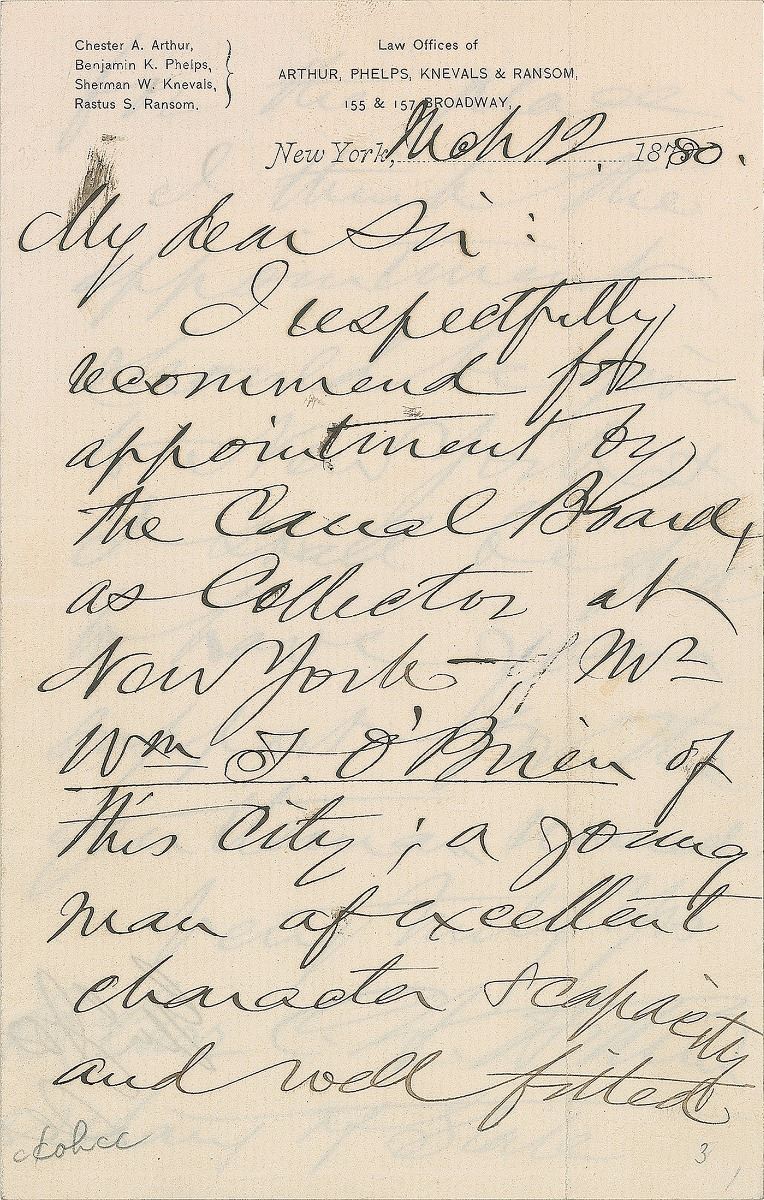 Chester A. Arthur,
Benjamin K. Phelps,
Sherman W. Knevals,
Rastus S. Ransom.
Law Offices of
ARTHUR, PHELPS, KNEVALS & RANSOM,
155 & 157 BROADWAY,
New York, Mch 12, 1880.
My dear Sir:
I respectfully
recommend for
appointment by
the Canal Board,
as Collector at
New York - Mr
Wm J. O'Brien of
this City; a young
man of excellent
character & capacity
and well fitted
3